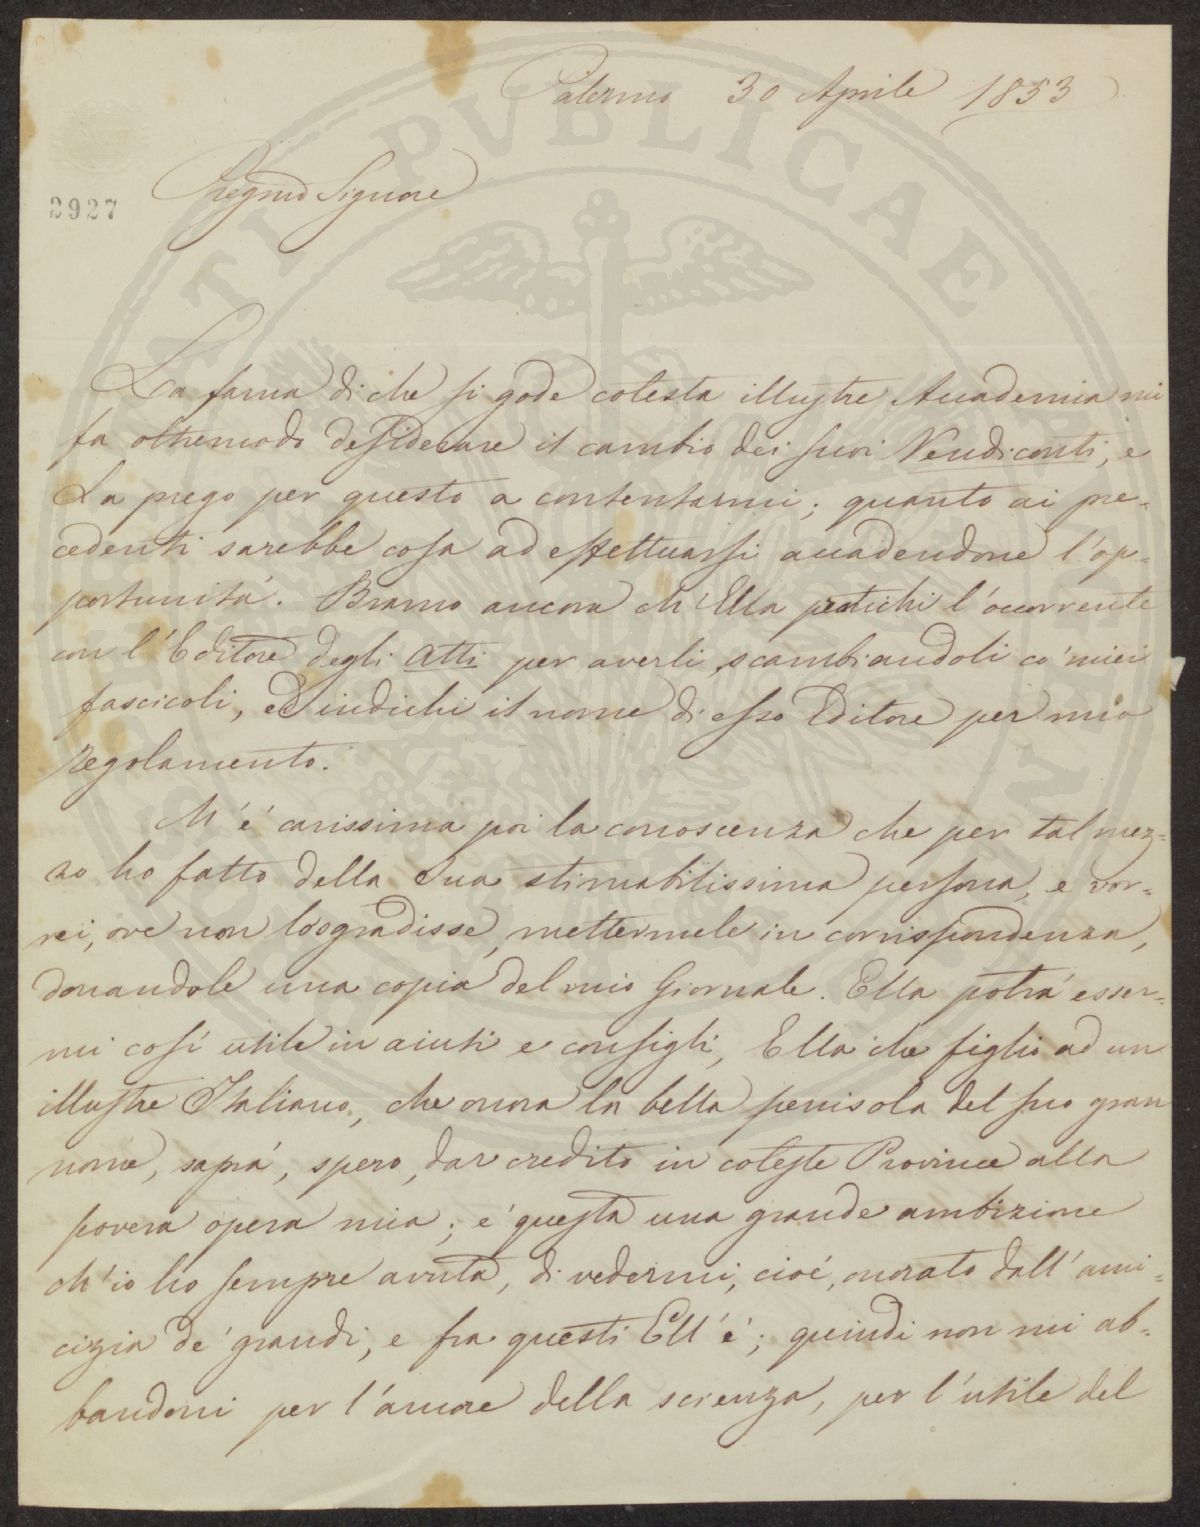 Palermo 30 Aprile 1853
2927
Pregmo Signore
La fama di che si gode cotesta illustre Accademia mi
fa oltremodo desiderare il cambio dei suoi Rendiconti, e
La prego per questo a contentarmi; quanto ai pre-
cedenti sarebbe cosa ad effettuarsi accadendone l'op-
portunità. Bramo ancora ch'Ella pratichi l'occorrente
con l'Editore degli Atti per averli, scambiandoli co' miei
fascicoli, ed indichi il nome di esso Editore per mio
regolamento.
M'é carissima poi la conoscenza che per tal mez-
zo ho fatto della Sua stimabilissima persona, e vor-
rei, ove non lo sgradisse, mettermele in corrispondenza,
donandole una copia del mio Giornale. Ella potrá esser-
mi cosí utile in aiuti e consigli, Ella che figlio ad un
illustre Italiano, che onora la bella penisola del suo gran
nome, saprá, spero, dar credito in coteste Province alla
povera opera mia; e' questa una grande ambizione
ch'io ho sempre avuta, di vedermi, cioé, onorato dall'ami-
cizia de' grandi, e fra questi Ell'é; quindi non mi ab-
bandoni per l'amore della scienza, per l'utile del
PVBLICAE